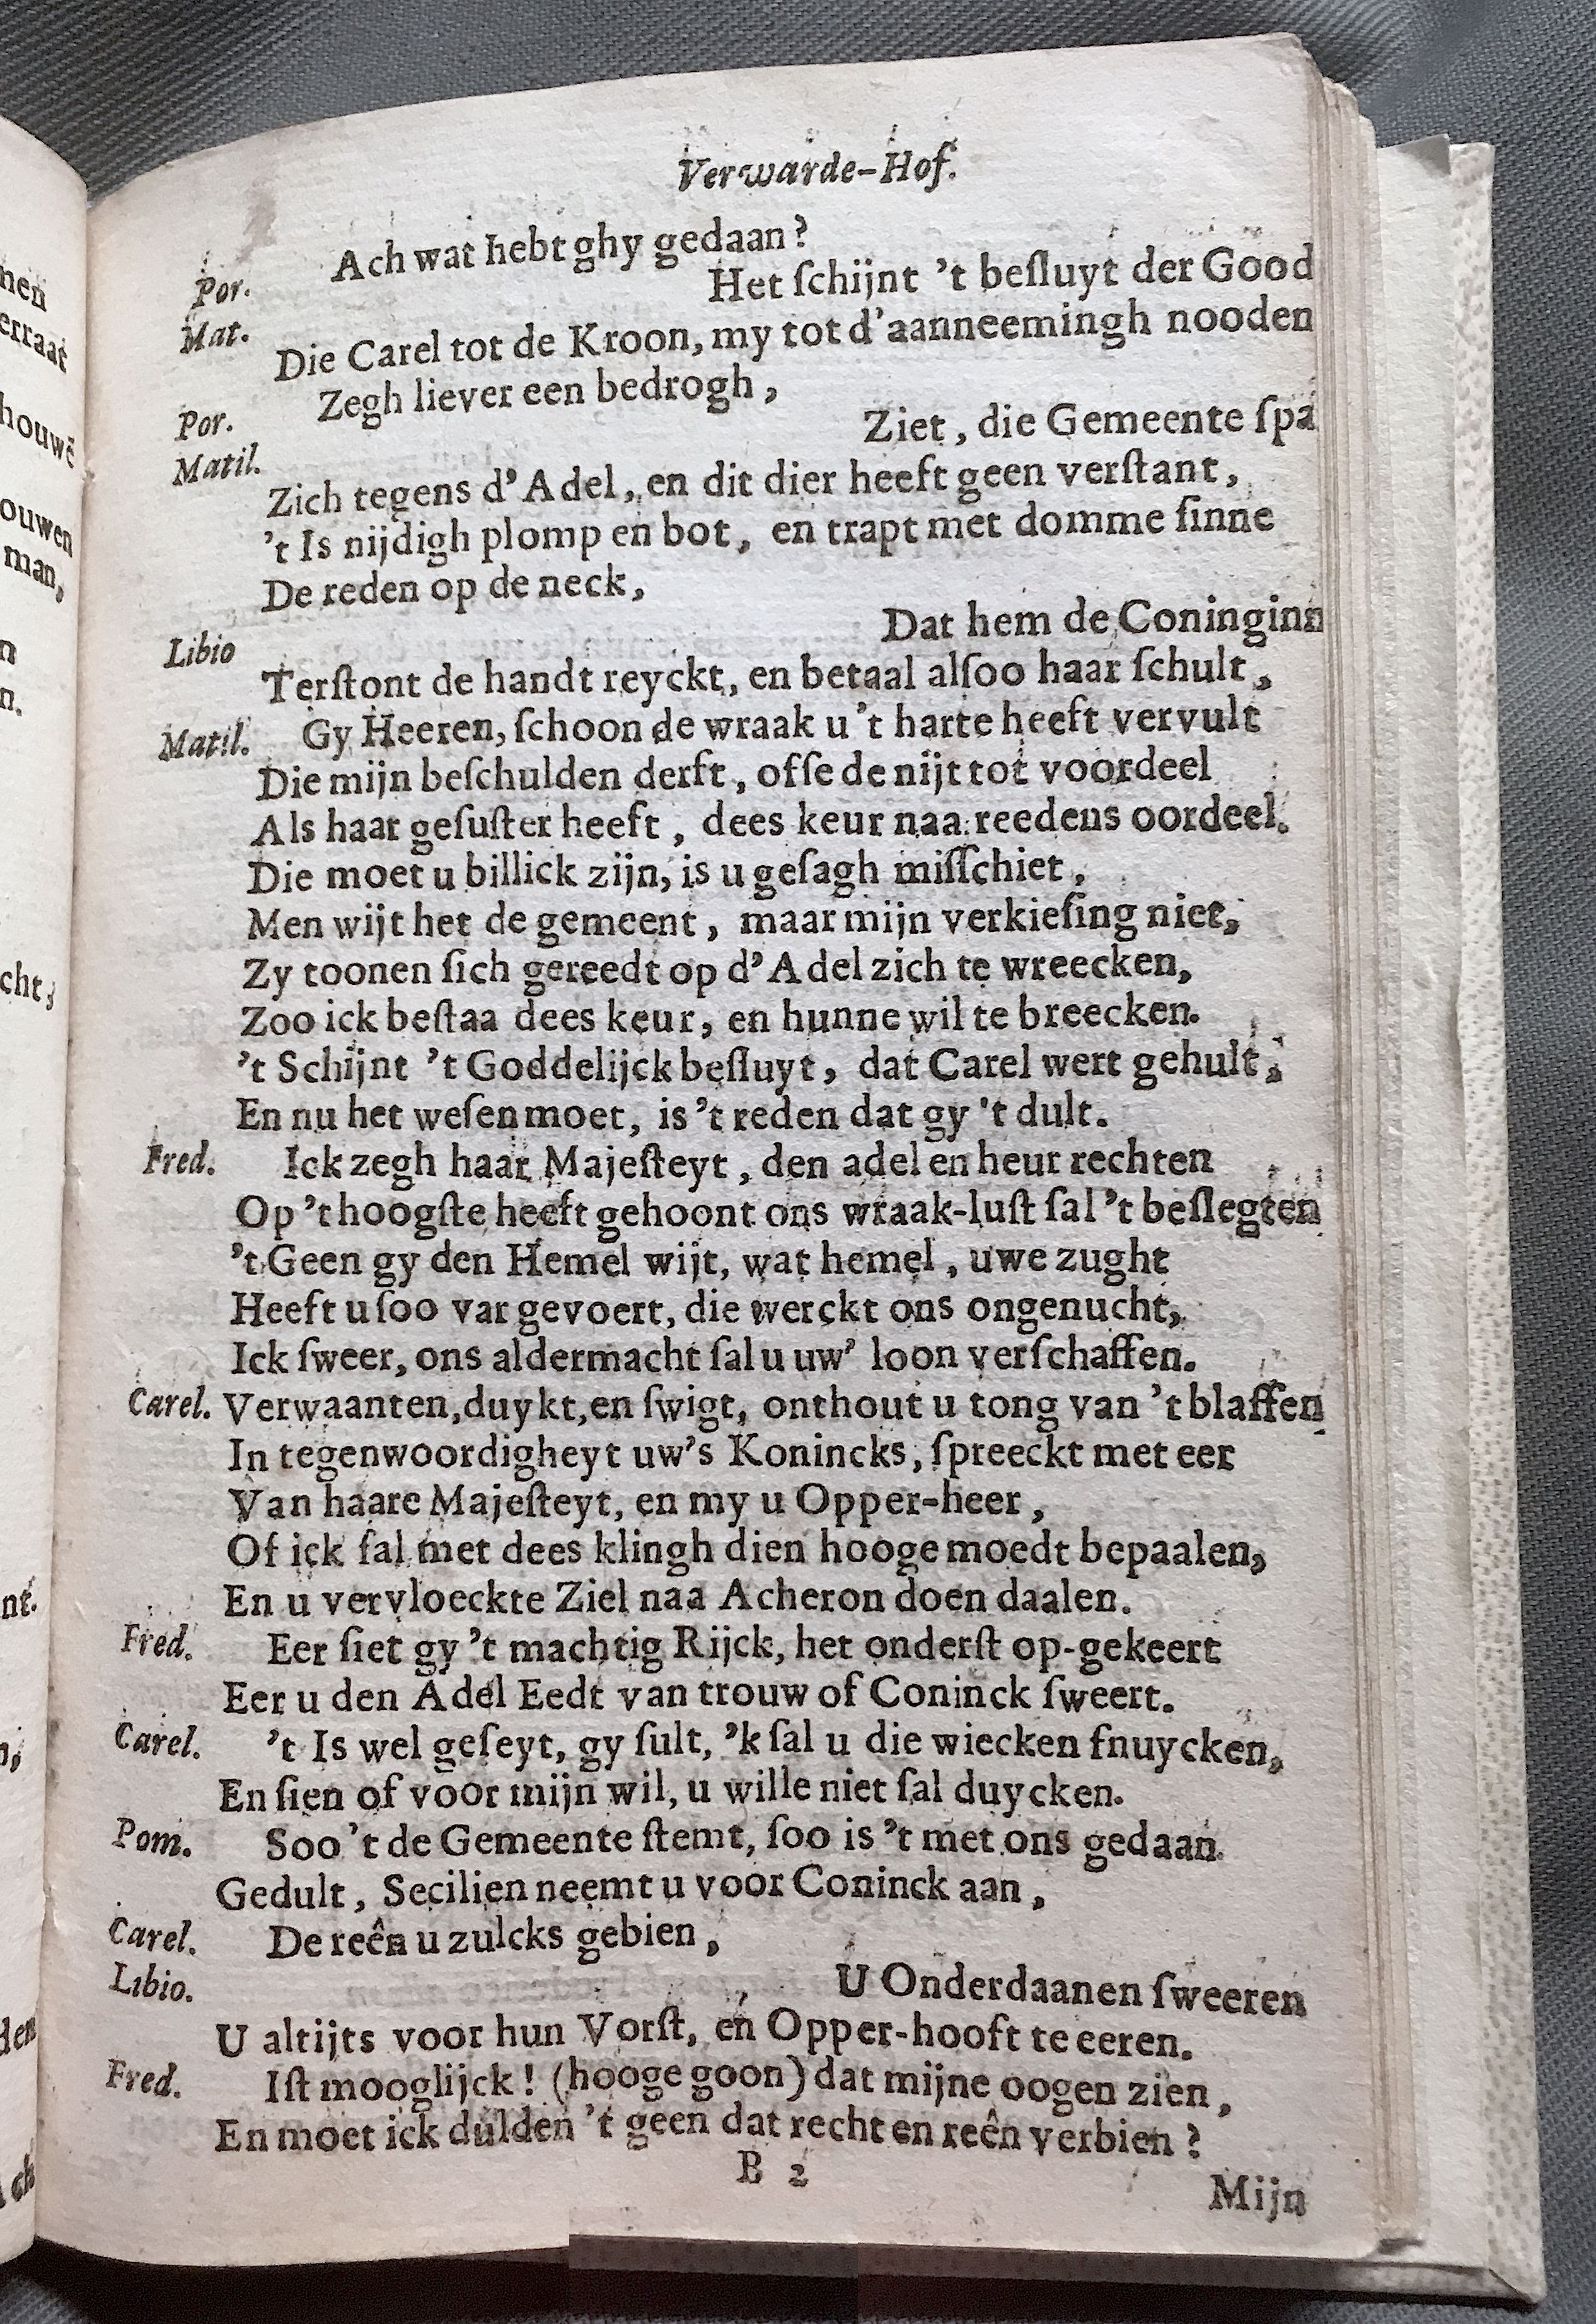 Verwarde-Hof.
Por. Ach wat hebt ghy gedaan?
Mat. Het ſchijnt 't beſluyt der Good
Die Carel tot de Kroon, my tot d'aanneemingh nooden
Por. Zegh liever een bedrogh,
Matil. Ziet, die Gemeente ſpa
Zich tegens d'Adel, en dit dier heeft geen verſtant,
't Is nijdigh plomp en bot, en trapt met domme ſinne
De reden op de neck,
Libio Dat hem de Coninginn
Terſtont de handt reyckt, en betaal alſoo haar ſchult,
Matil. Gy Heeren, ſchoon de wraak u 't harte heeft vervult
Die mijn beſchulden derft, ofſe de nijt tot voordeel
Als haar geſuſter heeft, dees keur naa reedens oordeel.
Die moet u billick zijn, is u geſagh miſſchiet,
Men wijt het de gemeent, maar mijn verkieſing niet,
Zy toonen ſich gereedt op d'Adel zich te wreecken,
Zoo ick beſtaa dees keur, en hunne wil te breecken.
't Schijnt 't Goddelijck beſluyt, dat Carel wert gehult,
En nu het weſen moet, is 't reden dat gy 't dult.
Fred. Ick zegh haar Majeſteyt, den adel en heur rechten
Op 't hoogſte heeft gehoont ons wraak-luſt ſal 't beſlegten
't Geen gy den Hemel wijt, wat hemel, uwe zught
Heeft u ſoo var gevoert, die werckt ons ongenucht,
Ick ſweer, ons aldermacht ſal u uw' loon verſchaffen.
Carel. Verwaanten, duykt, en ſwigt, onthout u tong van 't blaffen
In tegenwoordigheyt uw's Konincks, ſpreeckt met eer
Van haare Majeſteyt, en my u Opper-heer,
Of ick ſal met dees klingh dien hooge moedt bepaalen,
En u vervloeckte Ziel naa Acheron doen daalen.
Fred. Eer ſiet gy 't machtig Rijck, het onderſt op-gekeert
Eer u den Adel Eedt van trouw of Coninck ſweert.
Carel. 't Is wel geſeyt, gy ſult, 'k ſal u die wiecken fnuycken,
En ſien of voor mijn wil, u wille niet ſal duycken.
Pom. Soo 't de Gemeente ſtemt, ſoo is 't met ons gedaan.
Gedult, Secilien neemt u voor Coninck aan,
Carel. De reên u zulcks gebien,
Libio. U Onderdaanen ſweeren
U altijts voor hun Vorſt, en Opper-hooft te eeren.
Fred. Iſt mooglijck! (hooge goon) dat mijne oogen zien,
En moet ick dulden 't geen dat recht en reên verbien?
B 2
Mijn